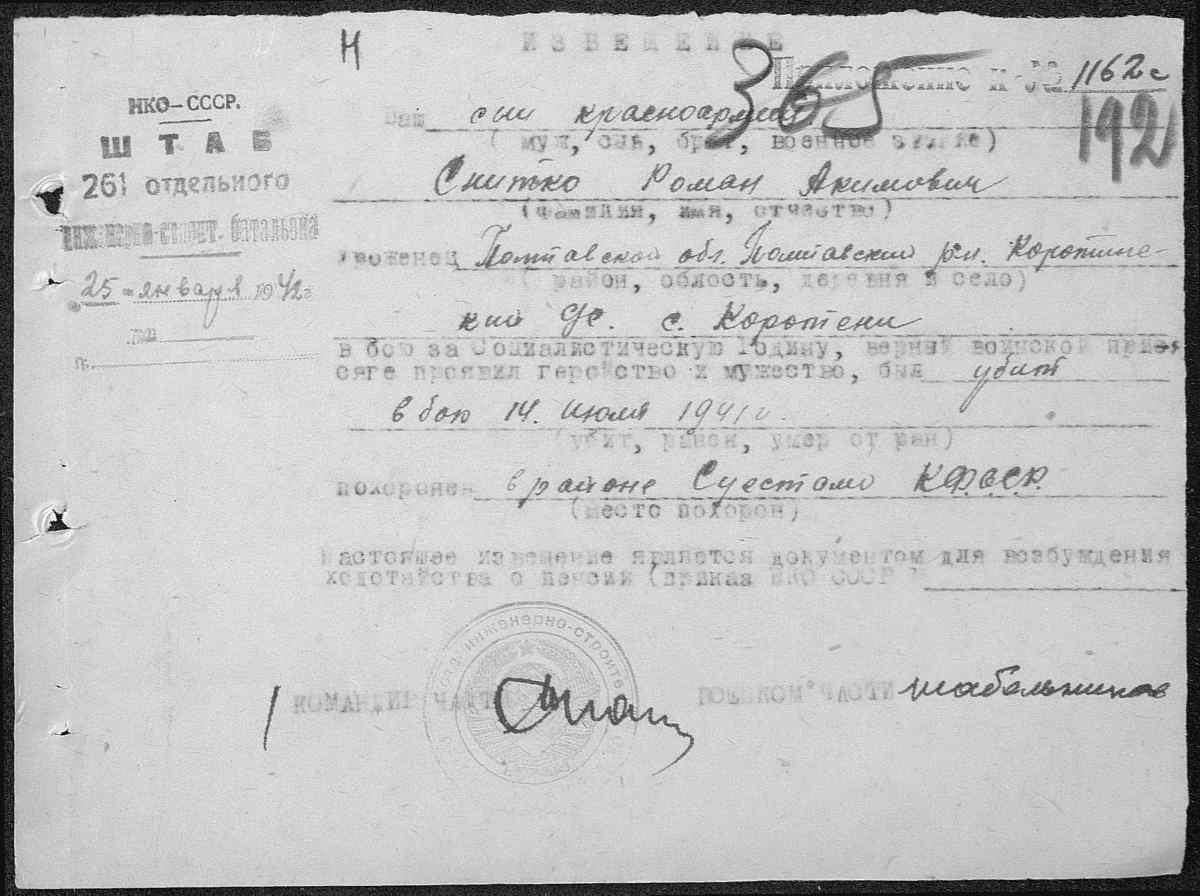 Н
ИЗВЕЩЕНИЕ
365
Приложение к № 1162с
192
НКО-СССР.
ШТАБ
261 отдельного
инженерно-строит. батальона
25 января 1942г
Ваш сын красноармеец
(муж, сын, брат, военное звание)
Снитко Роман Акимович
(фамилия, имя, отчество)
уроженец Полтавской обл. Полтавский р-н. Коротине-
(район, область, деревня и село)
кий ус. с. Коротени
в бою за Социалистическую Родину, верный воинской прися
сяге проявил геройство и мужество, был убит
в бою 14. июля 1941г.
(убит, ранен, умер от ран)
похоронен в районе Суестамо КФССР.
(место похорон)
Настоящее извещение является документом для возбуждения
ходотайства о пенсии (приказ НКО СССР
инженерно-строите
КОМАНДИР ЧАСТИ
ВОЕНКОМ ЧАСТИ Шабельников